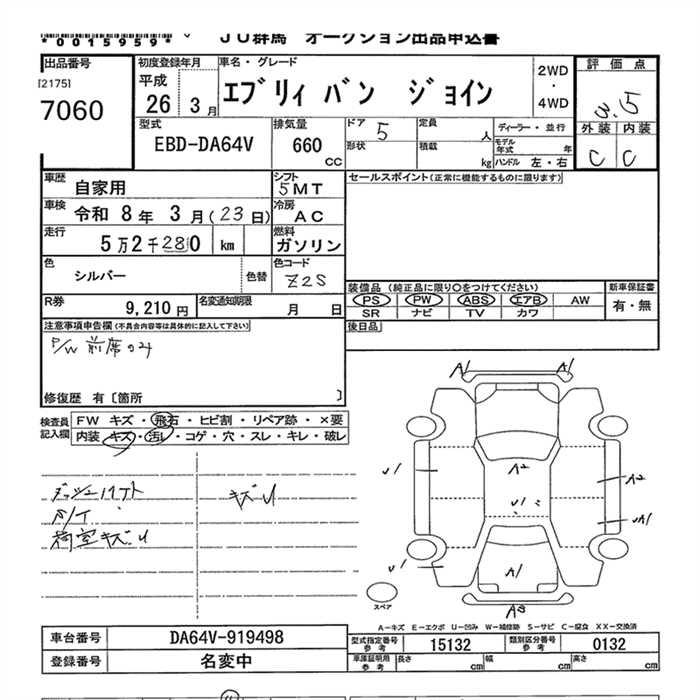 *0015959*
JU群馬 オークション出品申込書
出品番号
[2175]
7060
初度登録年月
平成
26 3月
車名・グレード
エブリィ バン ジョイン
2WD
・
4WD
評価点
3.5
外装 内装
C C
型式
EBD-DA64V
排気量
660
CC
ドア 5
形状
定員 人
積載 kg
ディーラー・並行
モデル年式 年
ハンドル 左・右
車歴
自家用
シフト
5MT
車検
令和 8年 3月(23日)
冷房
AC
走行
5万2千280 km
燃料
ガソリン
色
シルバー
色替
色コード
Z2S
R券
9,210円
名変通知期限
月 日
セールスポイント(正常に機能するものに限ります)
装備品(純正品に限り○をつけてください)
PS PW ABS エアB AW
SR ナビ TV カワ
新車保証書
有・無
後日品
注意事項申告欄(不具合内容等は具体的に記入して下さい)
P/W 前席のみ
修復歴 有〔箇所 〕
検査員記入欄
FW キズ・飛石・ヒビ割・リペア跡・×要
内装・キズ・汚レ・コゲ・穴・スレ・キレ・破レ
キズU
荷室キズU
A1 A1
U1 A2 A2
U1
UA1
U1 A1
A3
スペア
A-キズ E-エクボ U-凹み W-補修跡 S-サビ C-腐食 XX-交換済
車台番号
DA64V-919498
登録番号
名変中
型式指定番号
参考
15132
類別区分番号
参考
0132
車庫証明用
参考
長さ cm
幅 cm
高さ cm